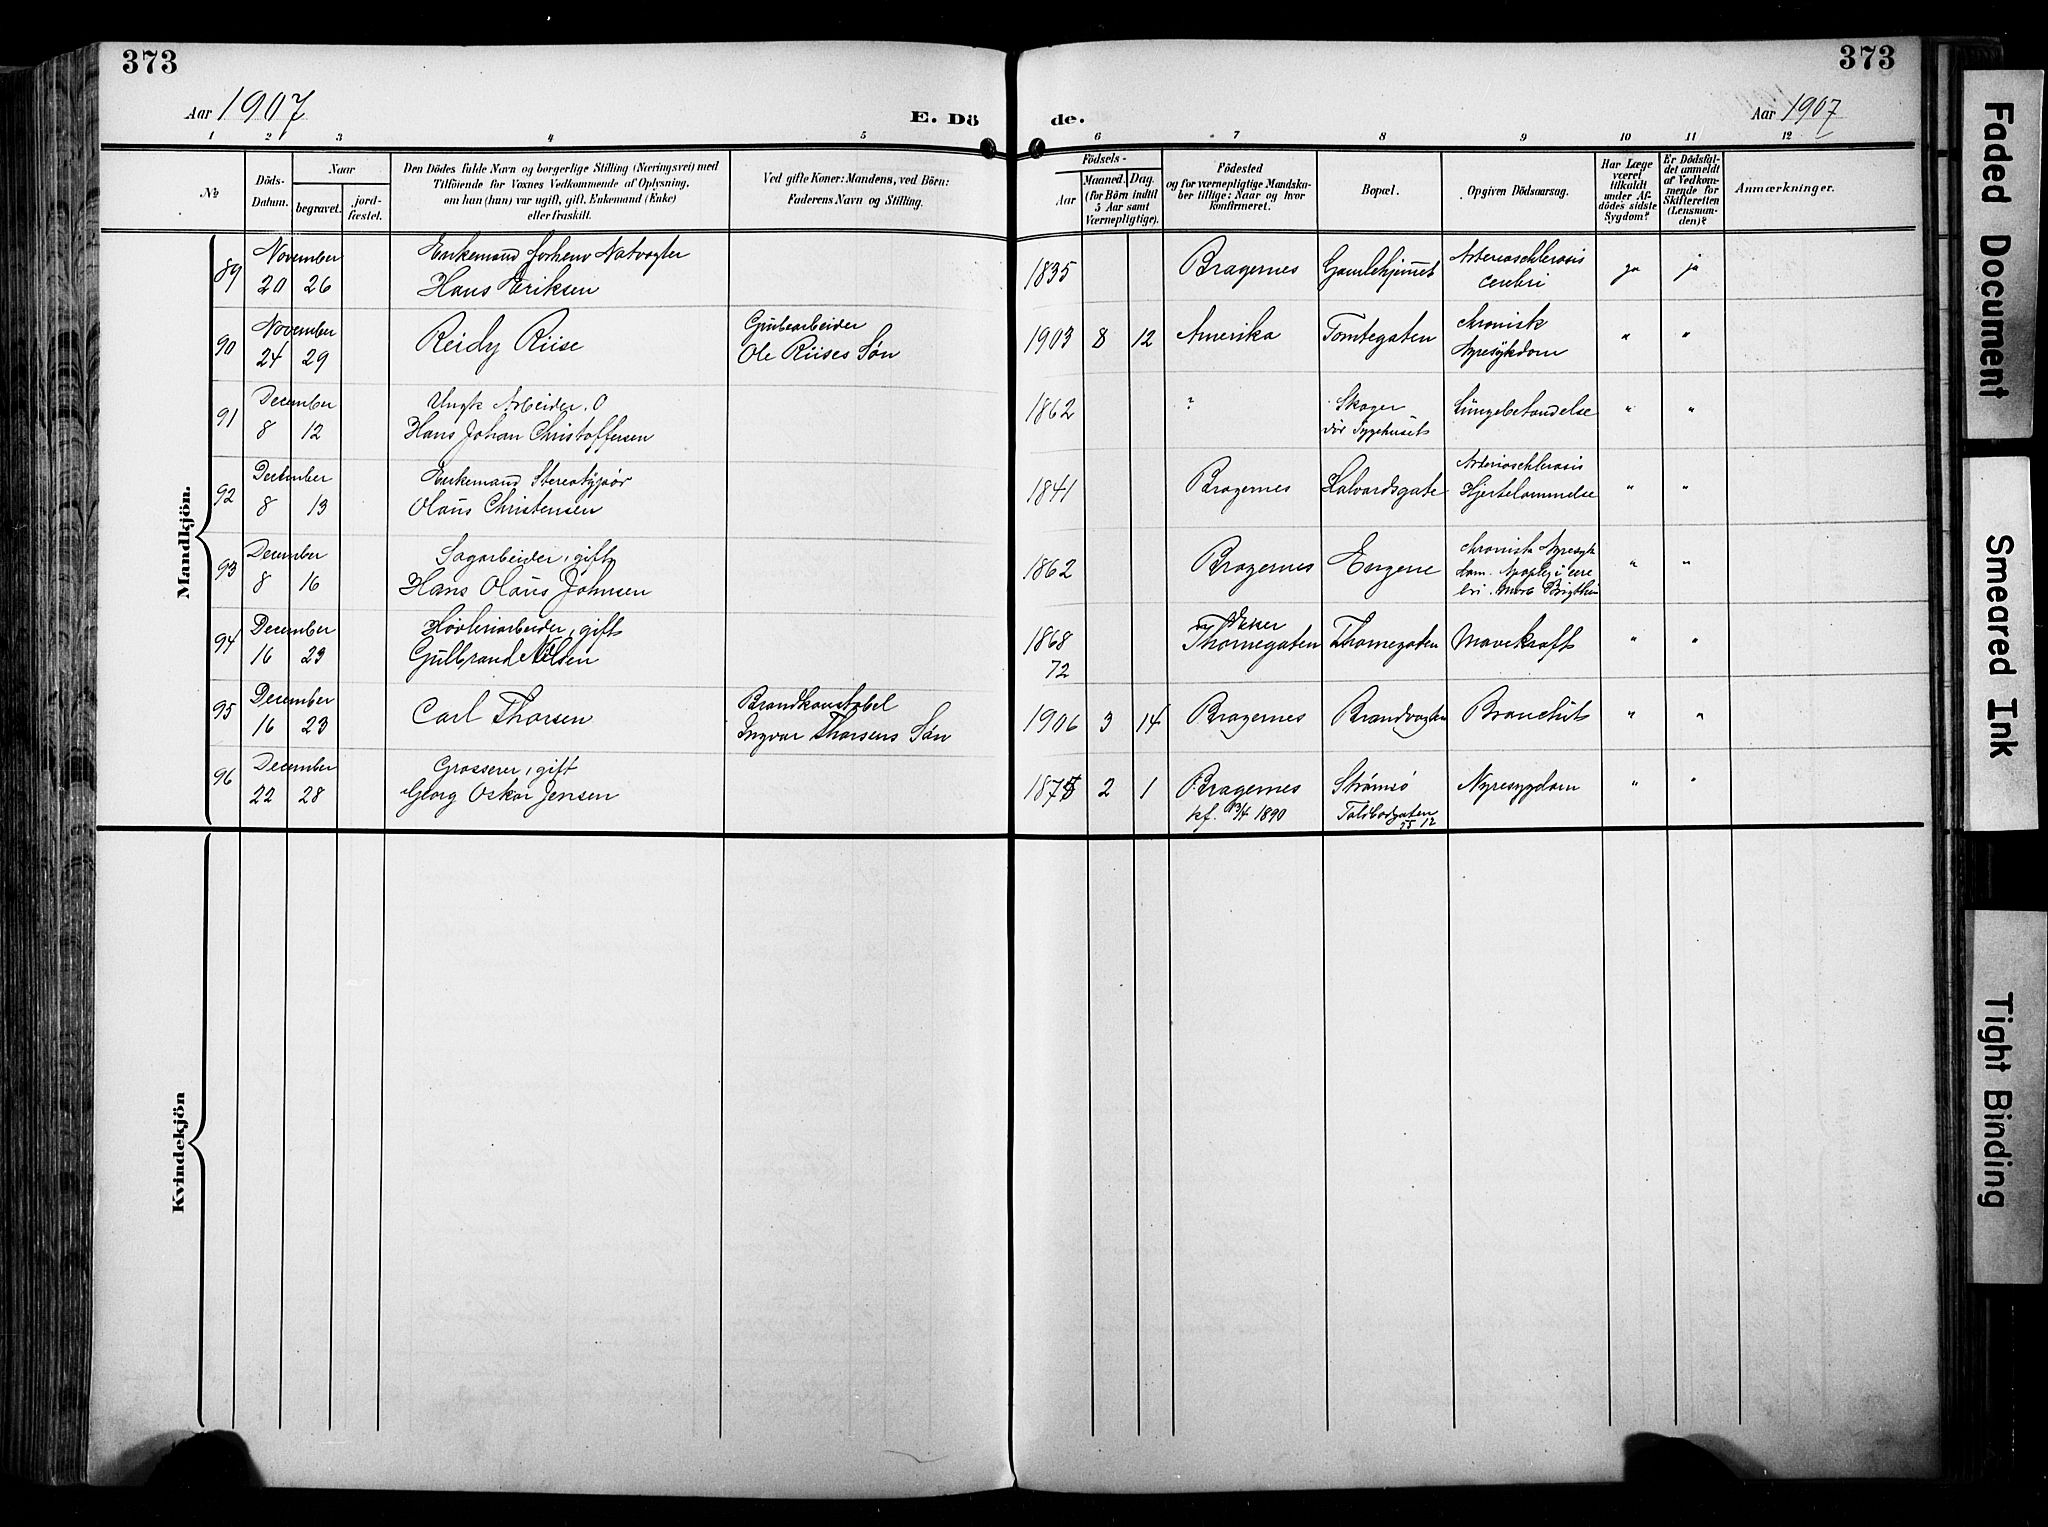 373
373
Aar 1907
E. Dö
de.
Aar 1907
1 2 3 4 5 6 7 8 9 10 11 12
№
Döds-
Datum.
Naar
begravet.
jord-
fæstet.
Den Dödes fulde Navn og borgerlige Stilling (Næringsvei) med
Tilföiende for Voxnes Vedkommende af Oplysning,
om han (hun) var ugift, gift, Enkemand (Enke)
eller fraskilt.
Ved gifte Koner: Mandens, ved Börn:
Faderens Navn og Stilling.
Födsels-
Aar
Maaned. Dag.
(for Börn indtil
5 Aar samt
Værnepligtige).
Födested
og for værnepligtige Mandska-
ber tillige: Naar og hvor
konfirmeret.
Bopæl.
Opgiven Dödsaarsag.
Har Læge
været
tilkaldt
under Af-
dödes sidste
Sygdom?
Er Dödsfal-
det anmeldt
af Vedkom-
mende for
Skifteretten
(Lensman-
den)?
Anmærkninger.
Mandkjön.
89 November Enkemand forhenv Natvagter
20 26 Hans Eriksen
1835 Bragernes Gamlehjemmet Arterioschlerosis ja ja
cerebri
90 November Reidy Riise Grubearbeider
24 29 Ole Riises Søn
1903 8 12 Amerika Tomtegaten chronisk " "
Nyresykdom
91 December Ungk Arbeider. O
8 12 Hans Johan Christoffersen
1862 ? Skoger Lungebetændelse " "
Sygehuset
92 December Enkemand Stereotypør
8 13 Olaus Christensen
1841 Bragernes Halvardsgate Arterioschlerosis " "
Hjertelammelse
93 December Sagarbeider, gift
8 16 Hans Olaus Johnsen
1862 Bragernes Engene chronisk Nyresyk " "
dom. Apoplexi cere
bri. Morb Brigthii
94 December Høvleriarbeider, gift
16 23 Gulbrand Nilsen
1868 Eker
72 Thornegaten Thornegaten Mavekræft " "
95 December Carl Thorsen Brandkonstabel
16 23 Ingvar Thorsens Søn
1906 3 14 Bragernes Brandvagten Bronchit " "
96 December Grosserer, gift
22 28 Georg Oskar Jensen
1875 2 1 Bragernes Strømsø Nyresygdom " "
kf. 13/4 1890 Toldbodgaten
Kvindekjön
Faded Document
Smeared Ink
Tight Binding